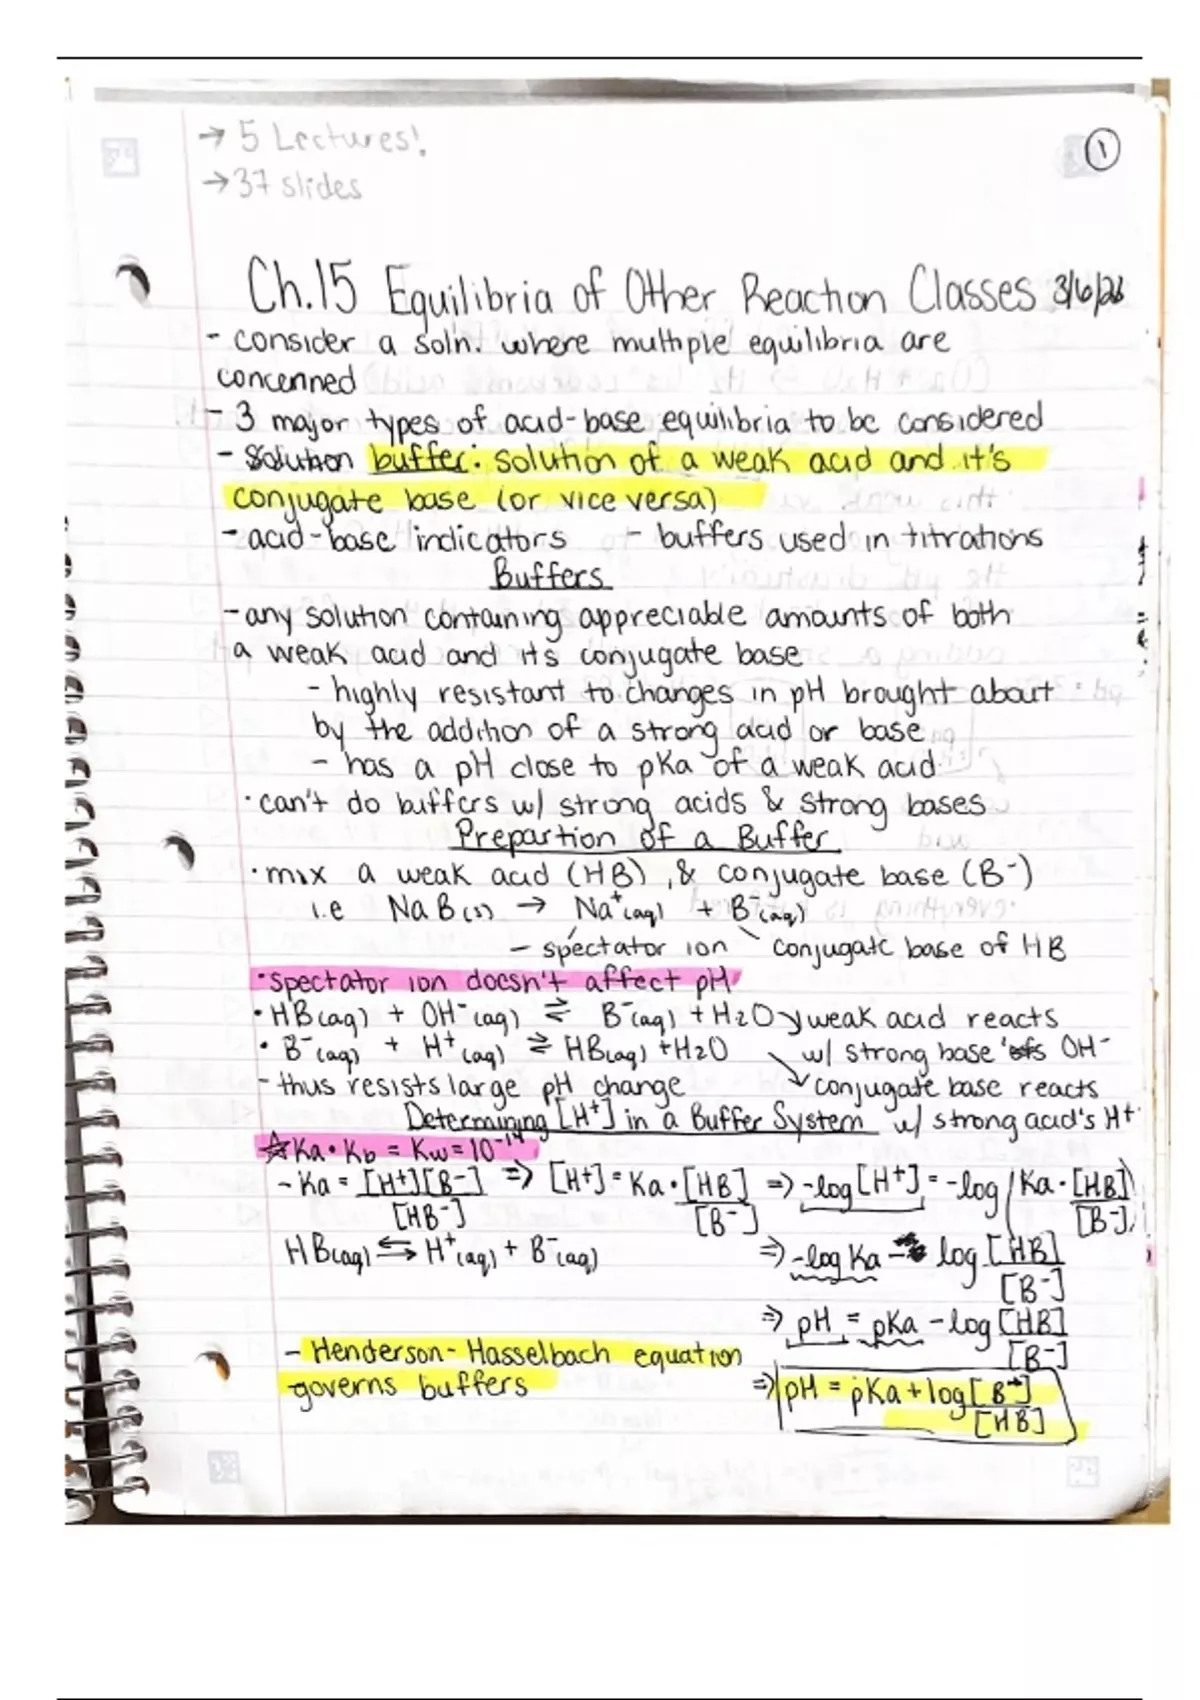 → 5 Lectures!
→ 37 slides
1
Ch.15 Equilibria of Other Reaction Classes 3/6/26
- consider a soln. where multiple equilibria are
concerned
- 3 major types of acid-base equilibria to be considered
- Solution buffer: solution of a weak acid and it's
conjugate base (or vice versa)
- acid-base indicators - buffers used in titrations
Buffers
- any solution containing appreciable amounts of both
a weak acid and its conjugate base
- highly resistant to changes in pH brought about
by the addition of a strong acid or base
- has a pH close to pKa of a weak acid
· can't do buffers w/ strong acids & strong bases
Prepartion of a Buffer
· mix a weak acid (HB), & conjugate base (B⁻)
i.e NaB(s) → Na⁺(aq) + B⁻(aq)
- spectator ion conjugate base of HB
· spectator ion doesn't affect pH
· HB(aq) + OH⁻(aq) ⇌ B⁻(aq) + H2O → weak acid reacts
· B⁻(aq) + H⁺(aq) ⇌ HB(aq) + H2O w/ strong base's OH⁻
- thus resists large pH change ↘ conjugate base reacts
Determining [H⁺] in a Buffer System w/ strong acid's H⁺
☆ Ka·Kb = Kw = 10⁻¹⁴
- Ka = [H⁺][B⁻]/[HB⁻] ⇒ [H⁺] = Ka·[HB]/[B⁻] ⇒ -log[H⁺] = -log(Ka·[HB]/[B⁻])
HB(aq) ⇆ H⁺(aq) + B⁻(aq) ⇒ -log Ka - log [HB]/[B⁻]
⇒ pH = pKa - log [HB]/[B⁻]
- Henderson-Hasselbach equation
governs buffers ⇒ pH = pKa + log [B⁻]/[HB]